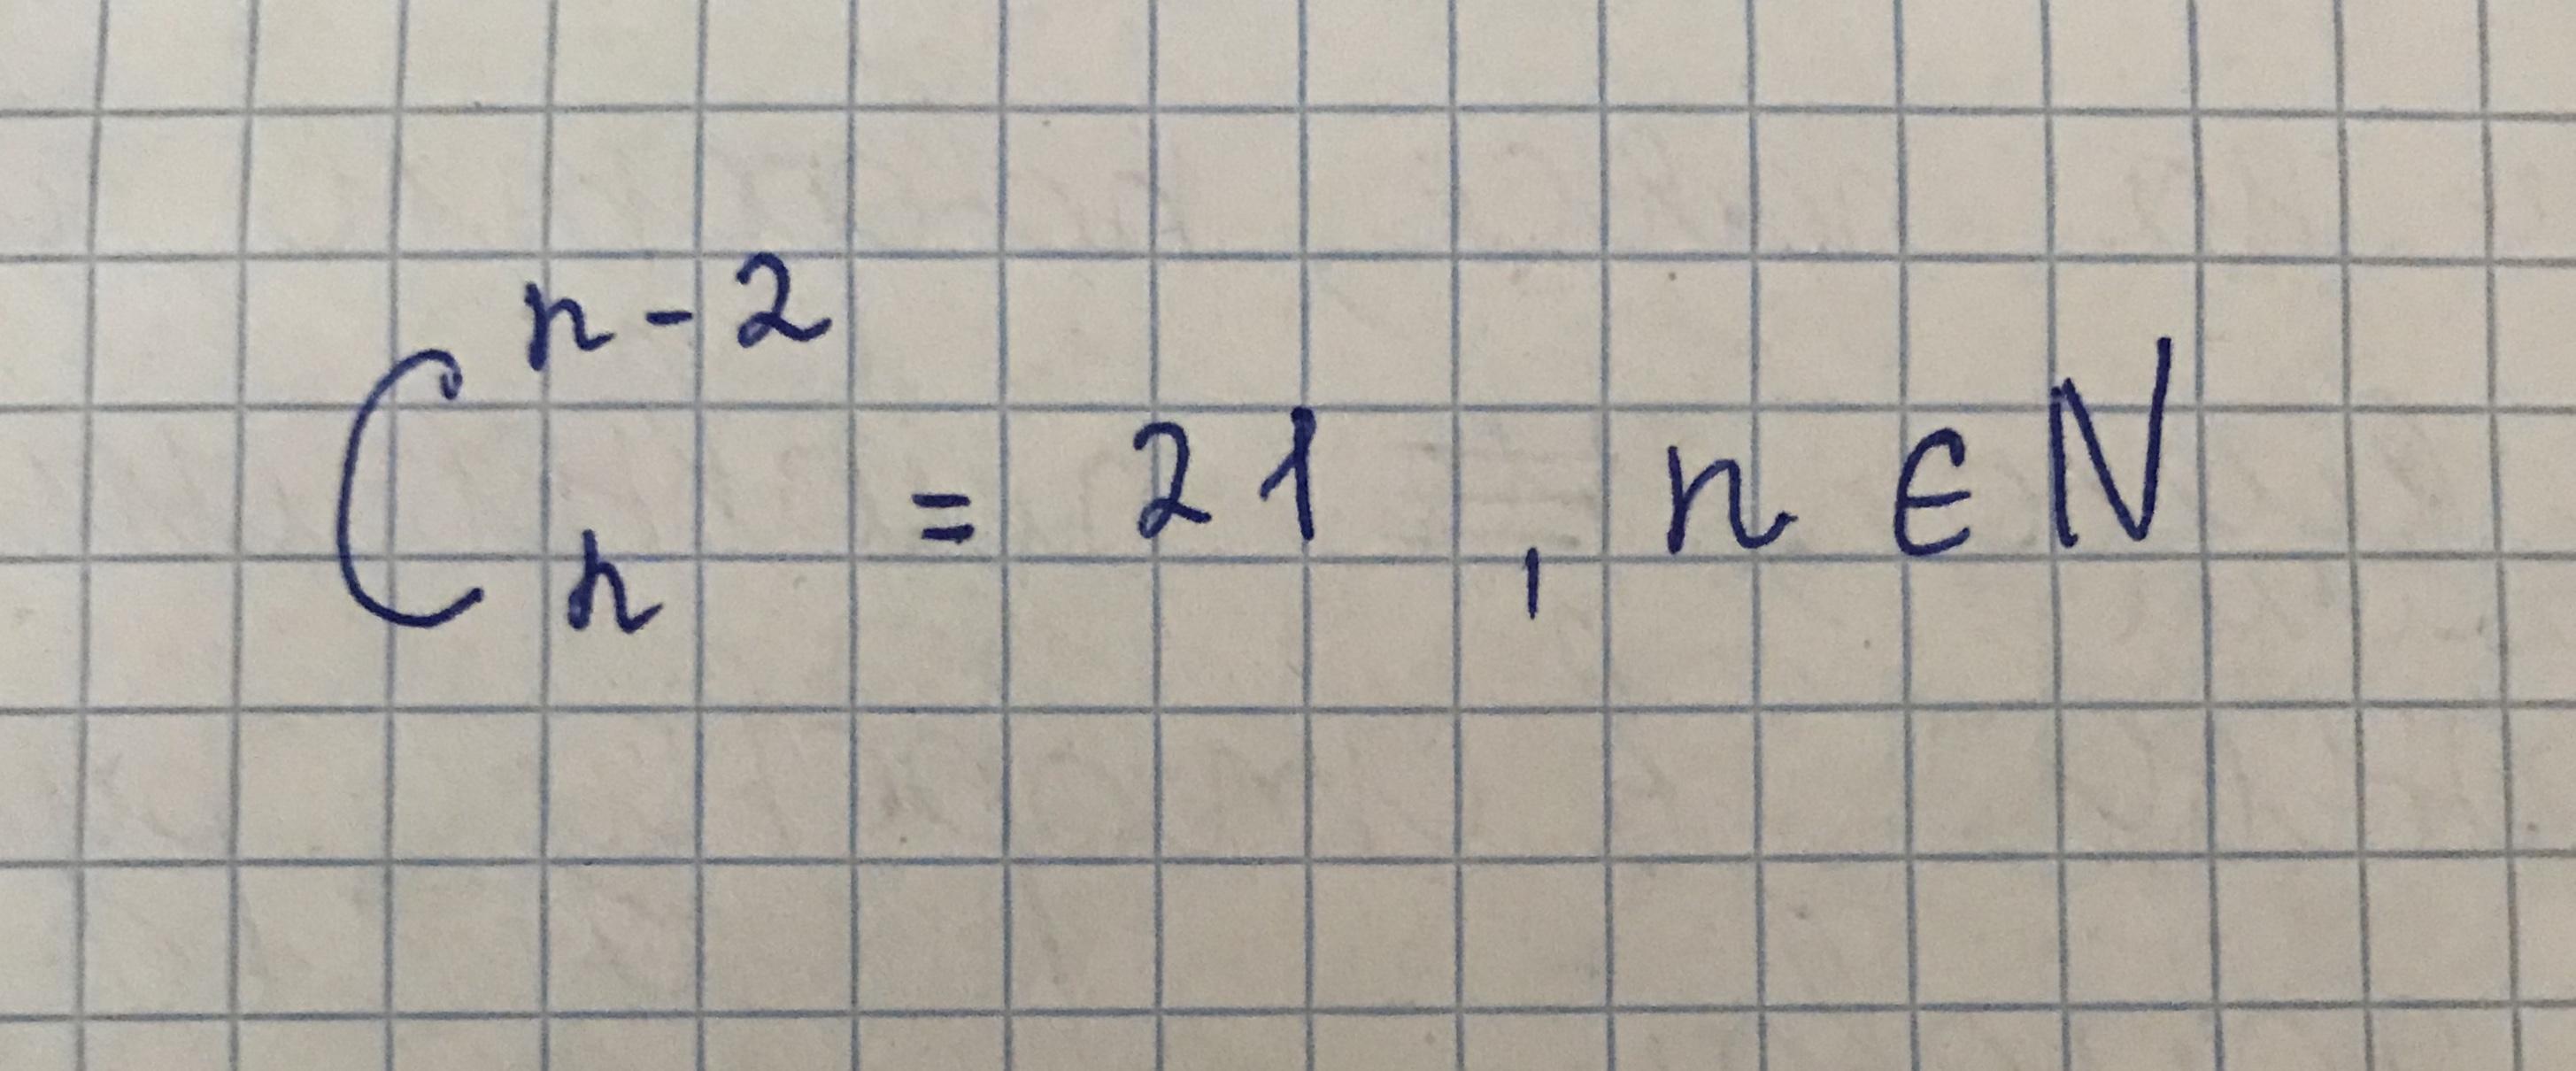 C_n^{n-2} = 21 , n ∈ N